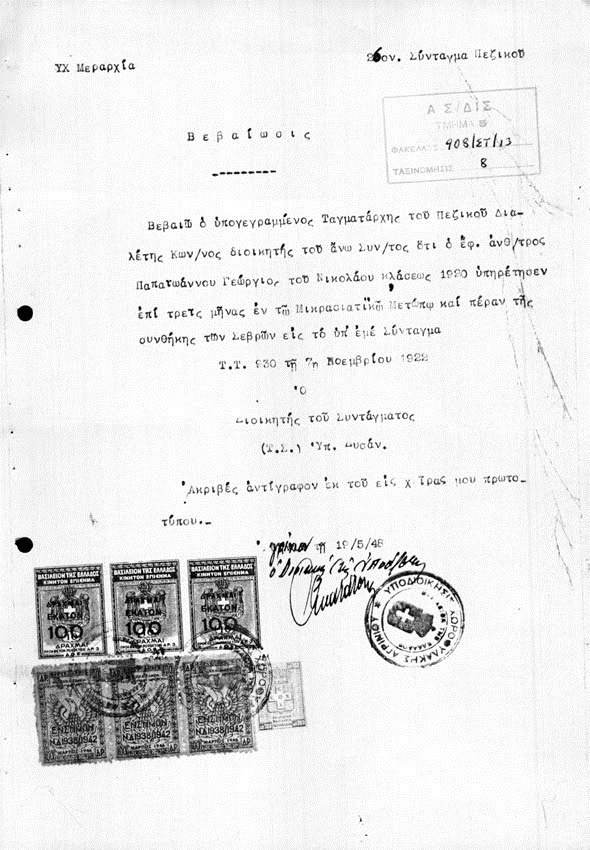 ΥΧ Μεραρχία
26ον. Σύνταγμα Πεζικοῦ
Α Σ/ΔΙΣ
ΤΜΗΜΑ
ΦΑΚΕΛΛΟΣ 908/ΣΤ/13
ΤΑΞΙΝΟΜΗΣΙΣ 8
Βεβαίωσις
Βεβαιῶ ὁ ὑπογεγραμμένος Ταγματάρχης τοῦ Πεζικοῦ Δια-
λέτης Κων/νος διοικητής τοῦ ἄνω Συν/τος ὅτι ὁ ἔφ. ἀνθ/τρος
Παπαϊωάννου Γεώργιος τοῦ Νικολάου κλάσεως 1920 ὑπηρέτησεν
ἐπί τρεῖς μῆνας ἐν τῶ Μικρασιατικῶ Μετώπω καί πέραν τῆς
συνθήκης τῶν Σεβρῶν εἰς τό ὑπ' ἐμέ Σύνταγμα
Τ.Τ. 930 τῆ 7η Νοεμβρίου 1922
Ὁ
Διοικητής τοῦ Συντάγματος
(Τ.Σ.) Ὑπ. Δυσάν.
Ἀκριβές ἀντίγραφον ἐκ τοῦ εἰς χεῖρας μου πρωτο-
τύπου.-
τῆ 19/5/48
ΒΑΣΙΛΕΙΟΝ ΤΗΣ ΕΛΛΑΔΟΣ ΒΑΣΙΛΕΙΟΝ ΤΗΣ ΕΛΛΑΔΟΣ ΒΑΣΙΛΕΙΟΝ ΤΗΣ ΕΛΛΑΔΟΣ
ΚΙΝΗΤΟΝ ΕΠΙΣΗΜΑ ΚΙΝΗΤΟΝ ΕΠΙΣΗΜΑ ΚΙΝΗΤΟΝ ΕΠΙΣΗΜΑ
ΕΚΑΤΟΝ ΕΚΑΤΟΝ ΕΚΑΤΟΝ
100 100 100
ΔΡΑΧΜΑΙ ΔΡΑΧΜΑΙ ΔΡΑΧΜΑΙ
ΥΠΟΔΙΟΙΚΗΣΙΣ ΧΩΡΟΦΥΛΑΚΗΣ ΑΓΡΙΝΙΟΥ
ΕΝΣΗΜΟΝ ΕΝΣΗΜΟΝ ΕΝΣΗΜΟΝ
ΝΔ1938/1942 ΝΔ1938/1942 ΝΔ1938/1942